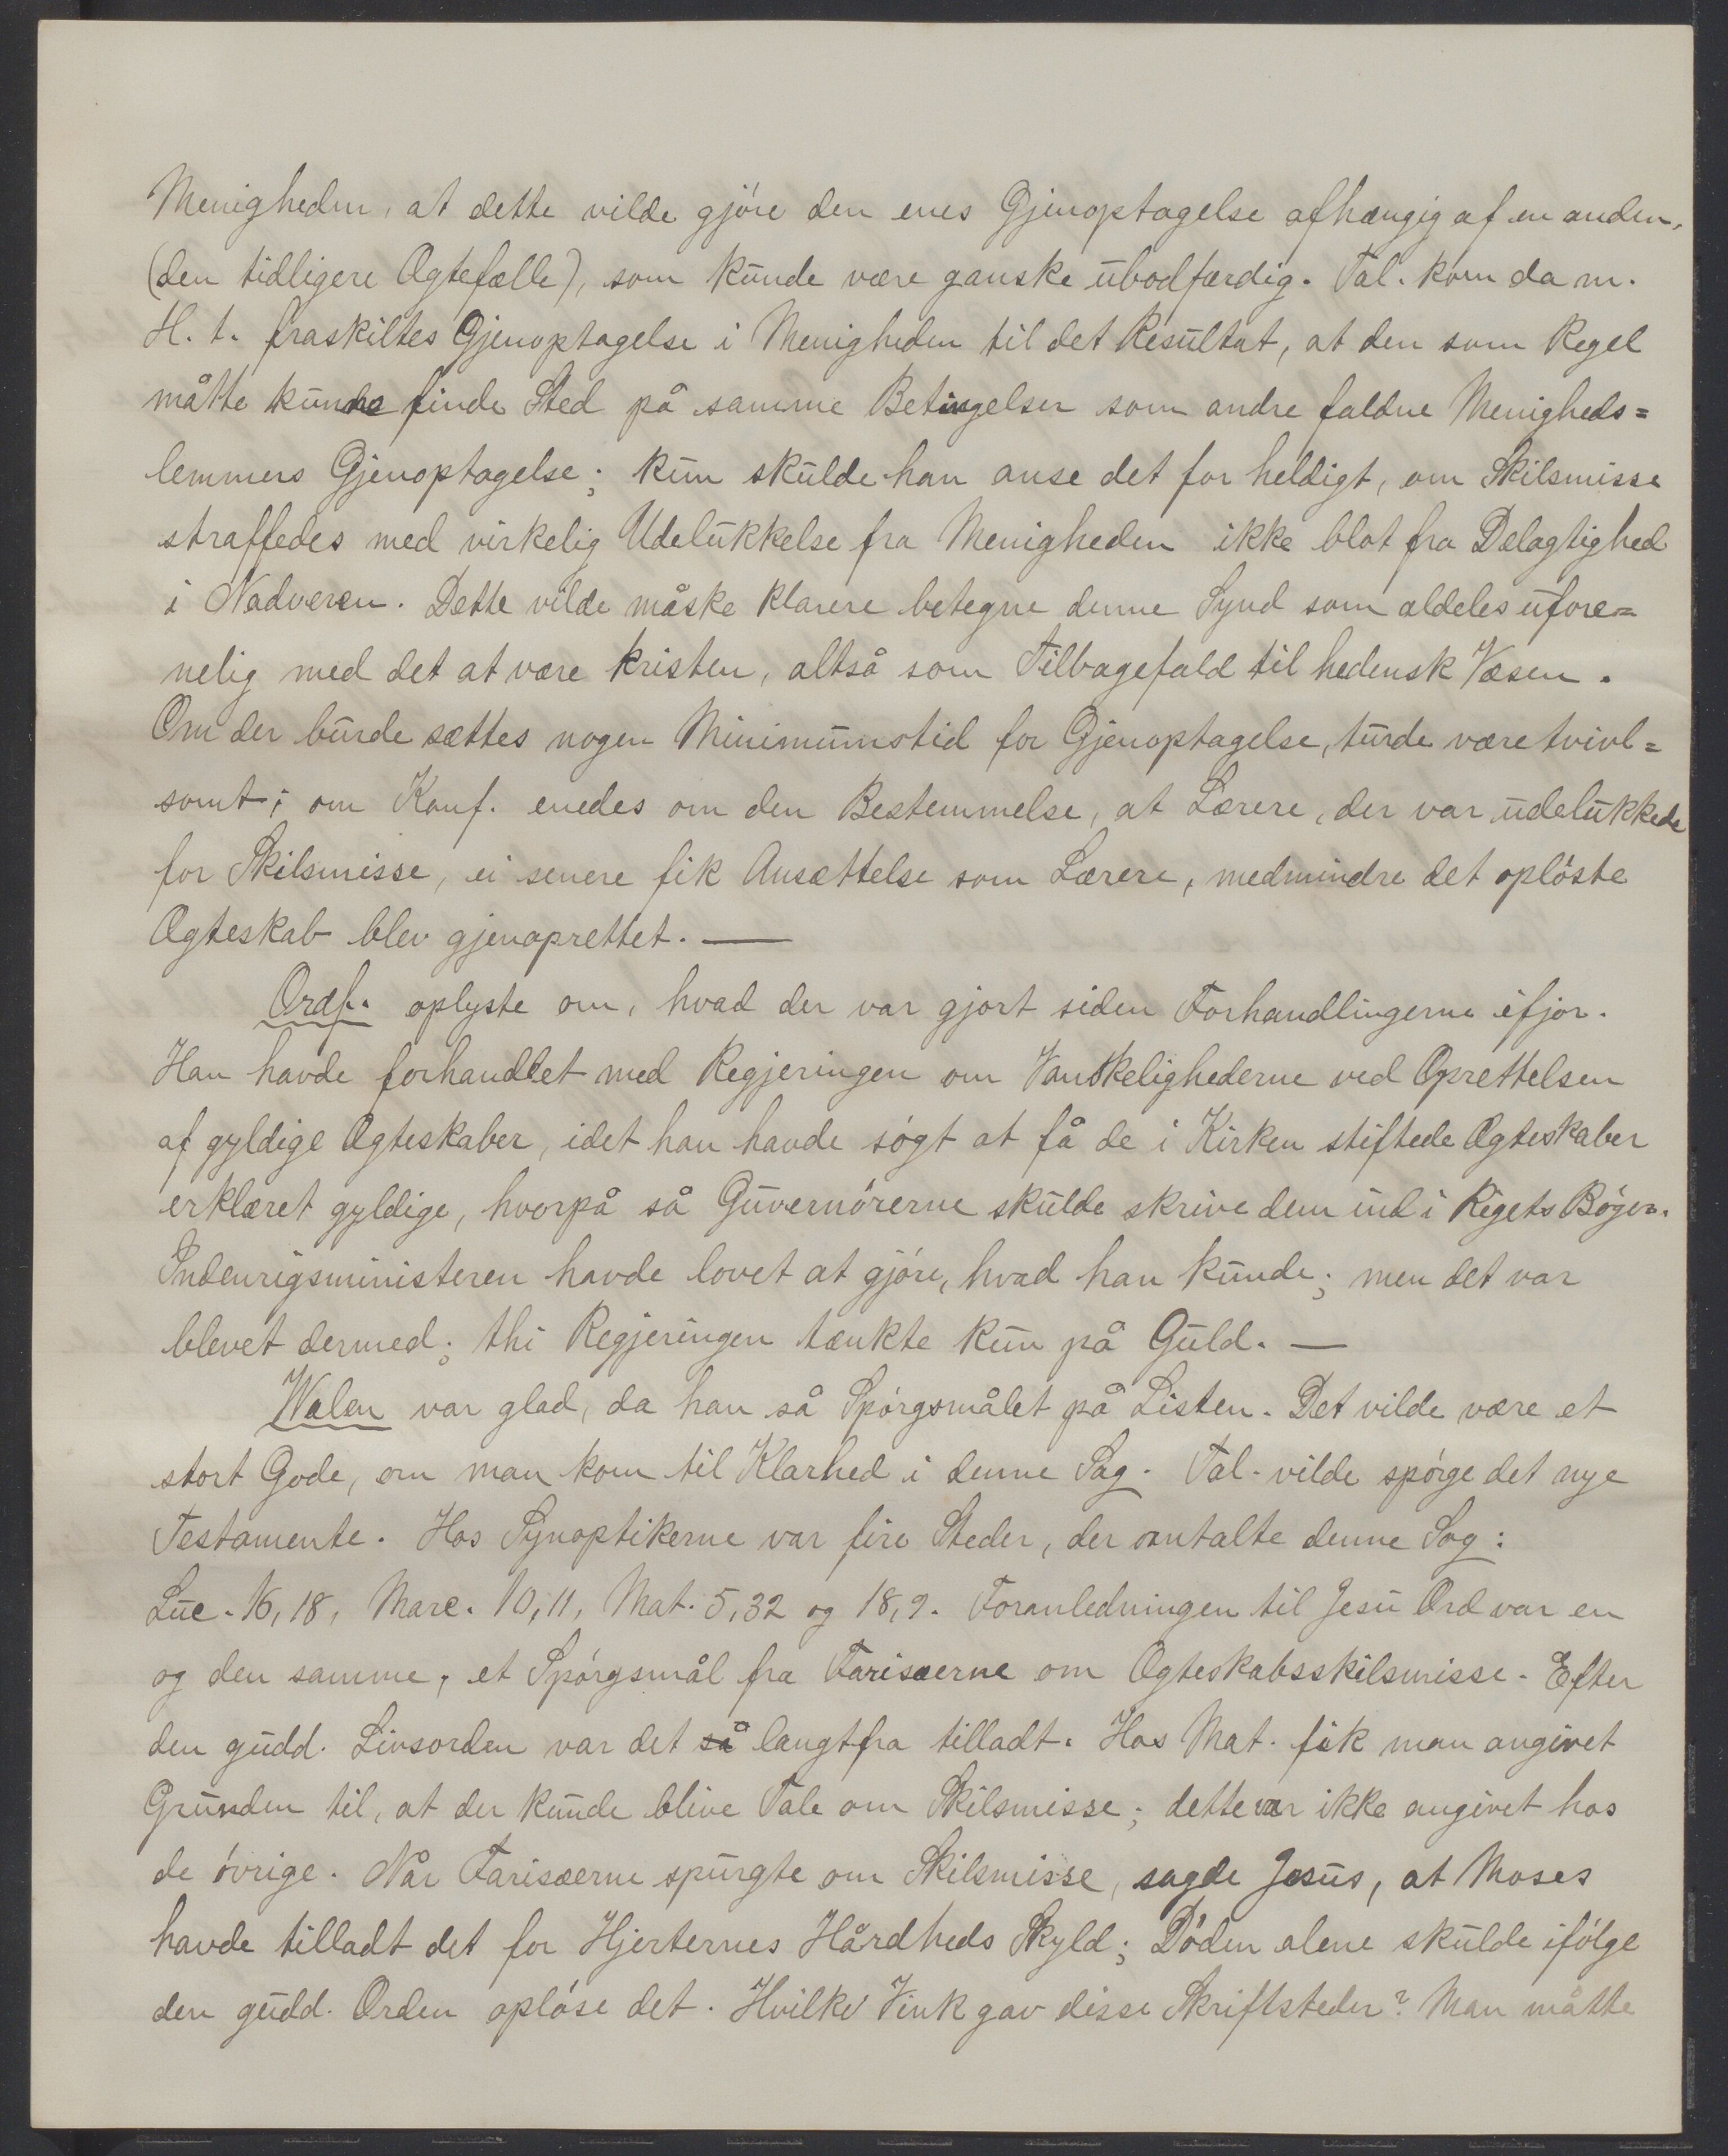 Menigheden, at dette vilde gjöre den enes Gjenoptagelse afhængig af en anden,
(den tidligere Ægtefælle), som kunde være ganske ubodfærdig. Tal. kom da m.
H. t. fraskiltes Gjenoptagelse i Menigheden til det Resultat, at den som Regel
måtte kunne finde Sted på samme Betingelser som andre faldne Menigheds=
lemmers Gjenoptagelse; kun skulde han anse det for heldigt, om Skilsmisse
straffedes med virkelig Udelukkelse fra Menigheden ikke blot fra Delagtighed
i Nadveren. Dette vilde måske klarere betegne denne Synd som aldeles ufore=
nelig med det at være kristen, altså som Tilbagefald til hedensk Væsen.
Om der burde sættes nogen Minimumstid for Gjenoptagelse, turde være tvivl=
somt; om Konf. enedes om den Bestemmelse, at Lærere, der var udelukkede
for Skilsmisse, ei senere fik Ansættelse som Lærere, medmindre det oplöste
Ægteskab blev gjenoprettet. —
Ordf. oplyste om, hvad der var gjort siden Forhandlingerne ifjor.
Han havde forhandlet med Regjeringen om Vanskelighederne ved Oprettelsen
af gyldige Ægteskaber, idet han havde sögt at få de i Kirken stiftede Ægteskaber
erklæret gyldige, hvorpå så Guvernörerne skulde skrive dem ind i Rigets Böger.
Indenrigsministeren havde lovet at gjöre, hvad han kunde; men det var
blevet dermed; thi Regjeringen tænkte kun på Guld. —
Walen var glad, da han så Spörgsmålet på Listen. Det vilde være et
stort Gode, om man kom til Klarhed i denne Sag. Tal. vilde spörge det nye
Testamente. Hos Synoptikerne var fire Steder, der omtalte denne Sag:
Luc. 16,18, Marc. 10,11, Mat. 5,32 og 18,9. Foranledningen til Jesu Ord var en
og den samme, et Spörgsmål fra Farisæerne om Ægteskabsskilsmisse. Efter
den gudd. Livsorden var det så langtfra tilladt. Hos Mat. fik man angivet
Grunden til, at der kunde blive Tale om Skilsmisse; dette var ikke angivet hos
de övrige. Når Farisæerne spurgte om Skilsmisse, sagde Jesus, at Moses
havde tilladt det for Hjerternes Hårdheds Skyld; Döden alene skulde ifölge
den gudd. Orden oplöse det. Hvilke Vink gav disse Skriftsteder? Man måtte